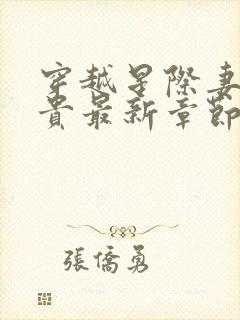 穿越星際妻
貴最新章節
張僑勇